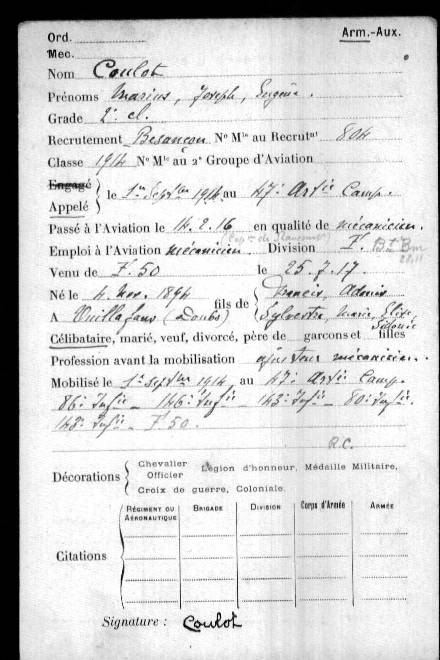 Ord. Arm.-Aux.
Mec.
Nom Coulot
Prénoms Marius, Joseph, Eugène.
Grade 2e cl.
Recrutement Besançon No Mle au Recrutnt 804
Classe 1914 No Mle au 2e Groupe d'Aviation
Engagé
Appelé
le 1er Septbre 1914 au 47e Artie Camp.
Passé à l'Aviation le 14.2.16 en qualité de mécanicien.
Emploi à l'Aviation mécanicien Division
Venu de F.50 le 25.7.17
Né le 4 Nov. 1894 fils de Francis, Adonis
A Vuillafans (Doubs) Sylvestre, Marie, Elise,
Célibataire, marié, veuf, divorcé, père de garçons et filles
Profession avant la mobilisation ajusteur mécanicien.
Mobilisé le 1er septbre 1914, au 47e Artie Camp.
86e Infie - 146e Infie - 143e Infie - 80e Infie.
148e Infie - F 50.
R.C.
Décorations
Chevalier
Officier
Légion d'honneur, Médaille Militaire,
Croix de guerre, Coloniale.
Régiment ou Aéronautique Brigade Division Corps d'Armée Armée
Citations
Signature : Coulot